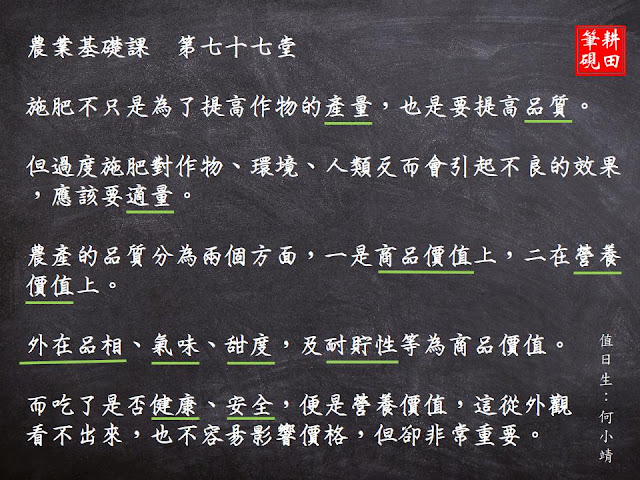 農業基礎課　第七十七堂
耕田
筆硯
施肥不只是為了提高作物的產量，也是要提高品質。
但過度施肥對作物、環境、人類反而會引起不良的效果
，應該要適量。
農產的品質分為兩個方面，一是商品價值上，二在營養
價值上。
外在品相、氣味、甜度，及耐貯性等為商品價值。
而吃了是否健康、安全，便是營養價值，這從外觀
看不出來，也不容易影響價格，但卻非常重要。
值日生：何小靖